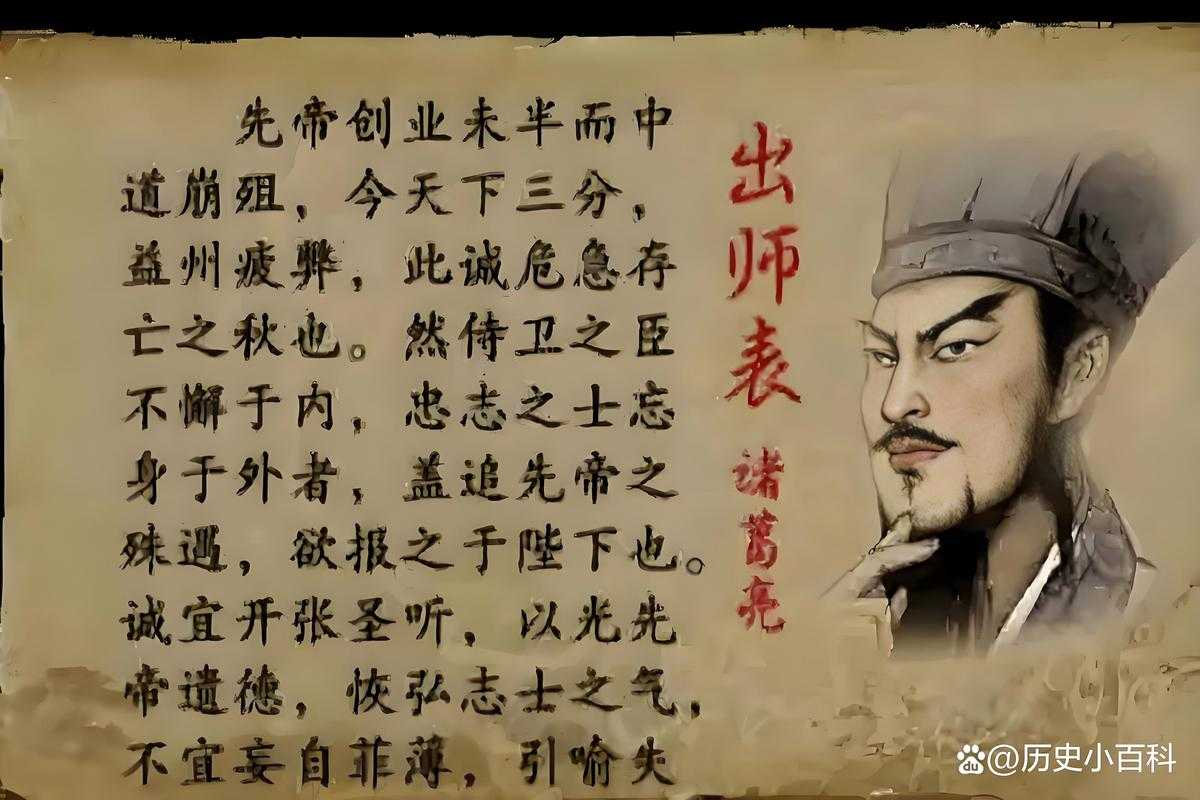 出师表
诸葛亮
先帝创业未半而中
道崩殂，今天下三分，
益州疲弊，此诚危急存
亡之秋也。然侍卫之臣
不懈于内，忠志之士忘
身于外者，盖追先帝之
殊遇，欲报之于陛下也。
诚宜开张圣听，以光先
帝遗德，恢弘志士之气，
不宜妄自菲薄，引喻失
du@历史小百科